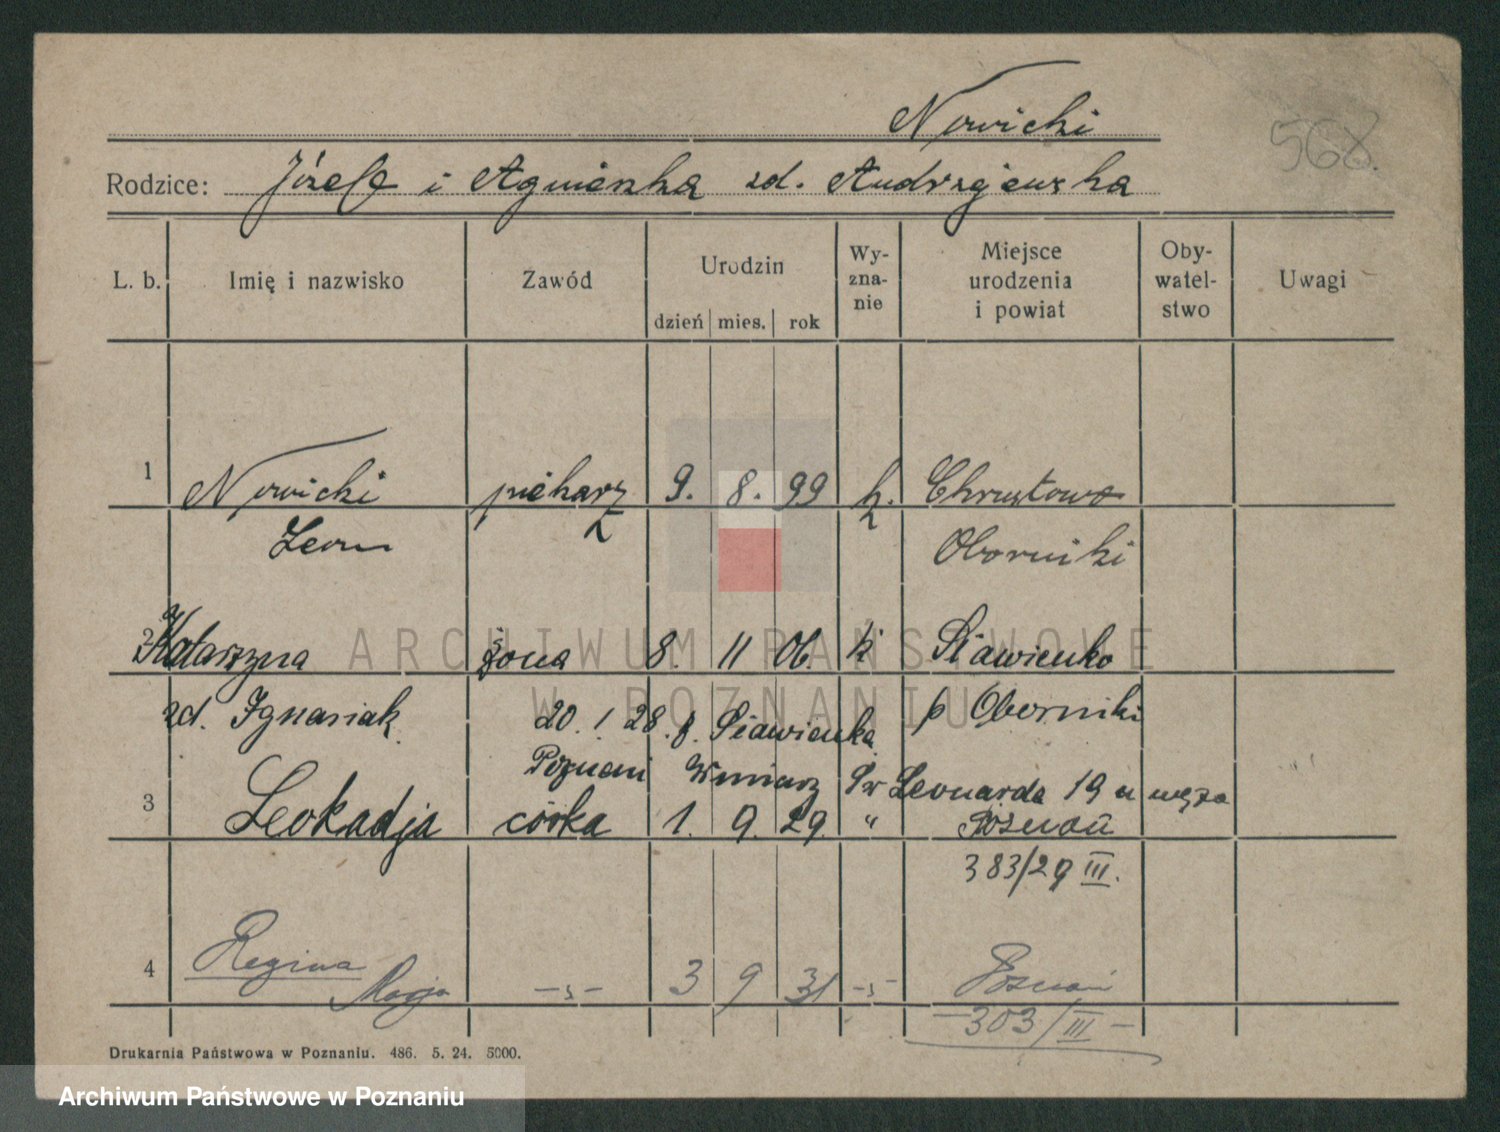 Nowicki
568.
Rodzice: Józef i Agnieszka zd. Andrzejewska
L. b. Imię i nazwisko Zawód Urodzin dzień mies. rok Wy-zna-nie Miejsce urodzenia i powiat Oby-watel-stwo Uwagi
1 Nowicki piekarz 9. 8. 99 k. Chrustowo
Leon Oborniki
2 Katarzyna żona 8. 11 06. k Sławienko
zd. Ignasiak 20. 1. 28. Sławienka p Oborniki
Poznań Winiary Św Leonarda 19 u męża
3 Leokadja córka 1. 9. 29. " Poznań
383/29 III.
4 Regina 3 9 31 Poznań
Marja
303/III
Drukarnia Państwowa w Poznaniu. 486. 5. 24. 5000.
ARCHIWUM PAŃSTWOWE
W POZNANIU
Archiwum Państwowe w Poznaniu